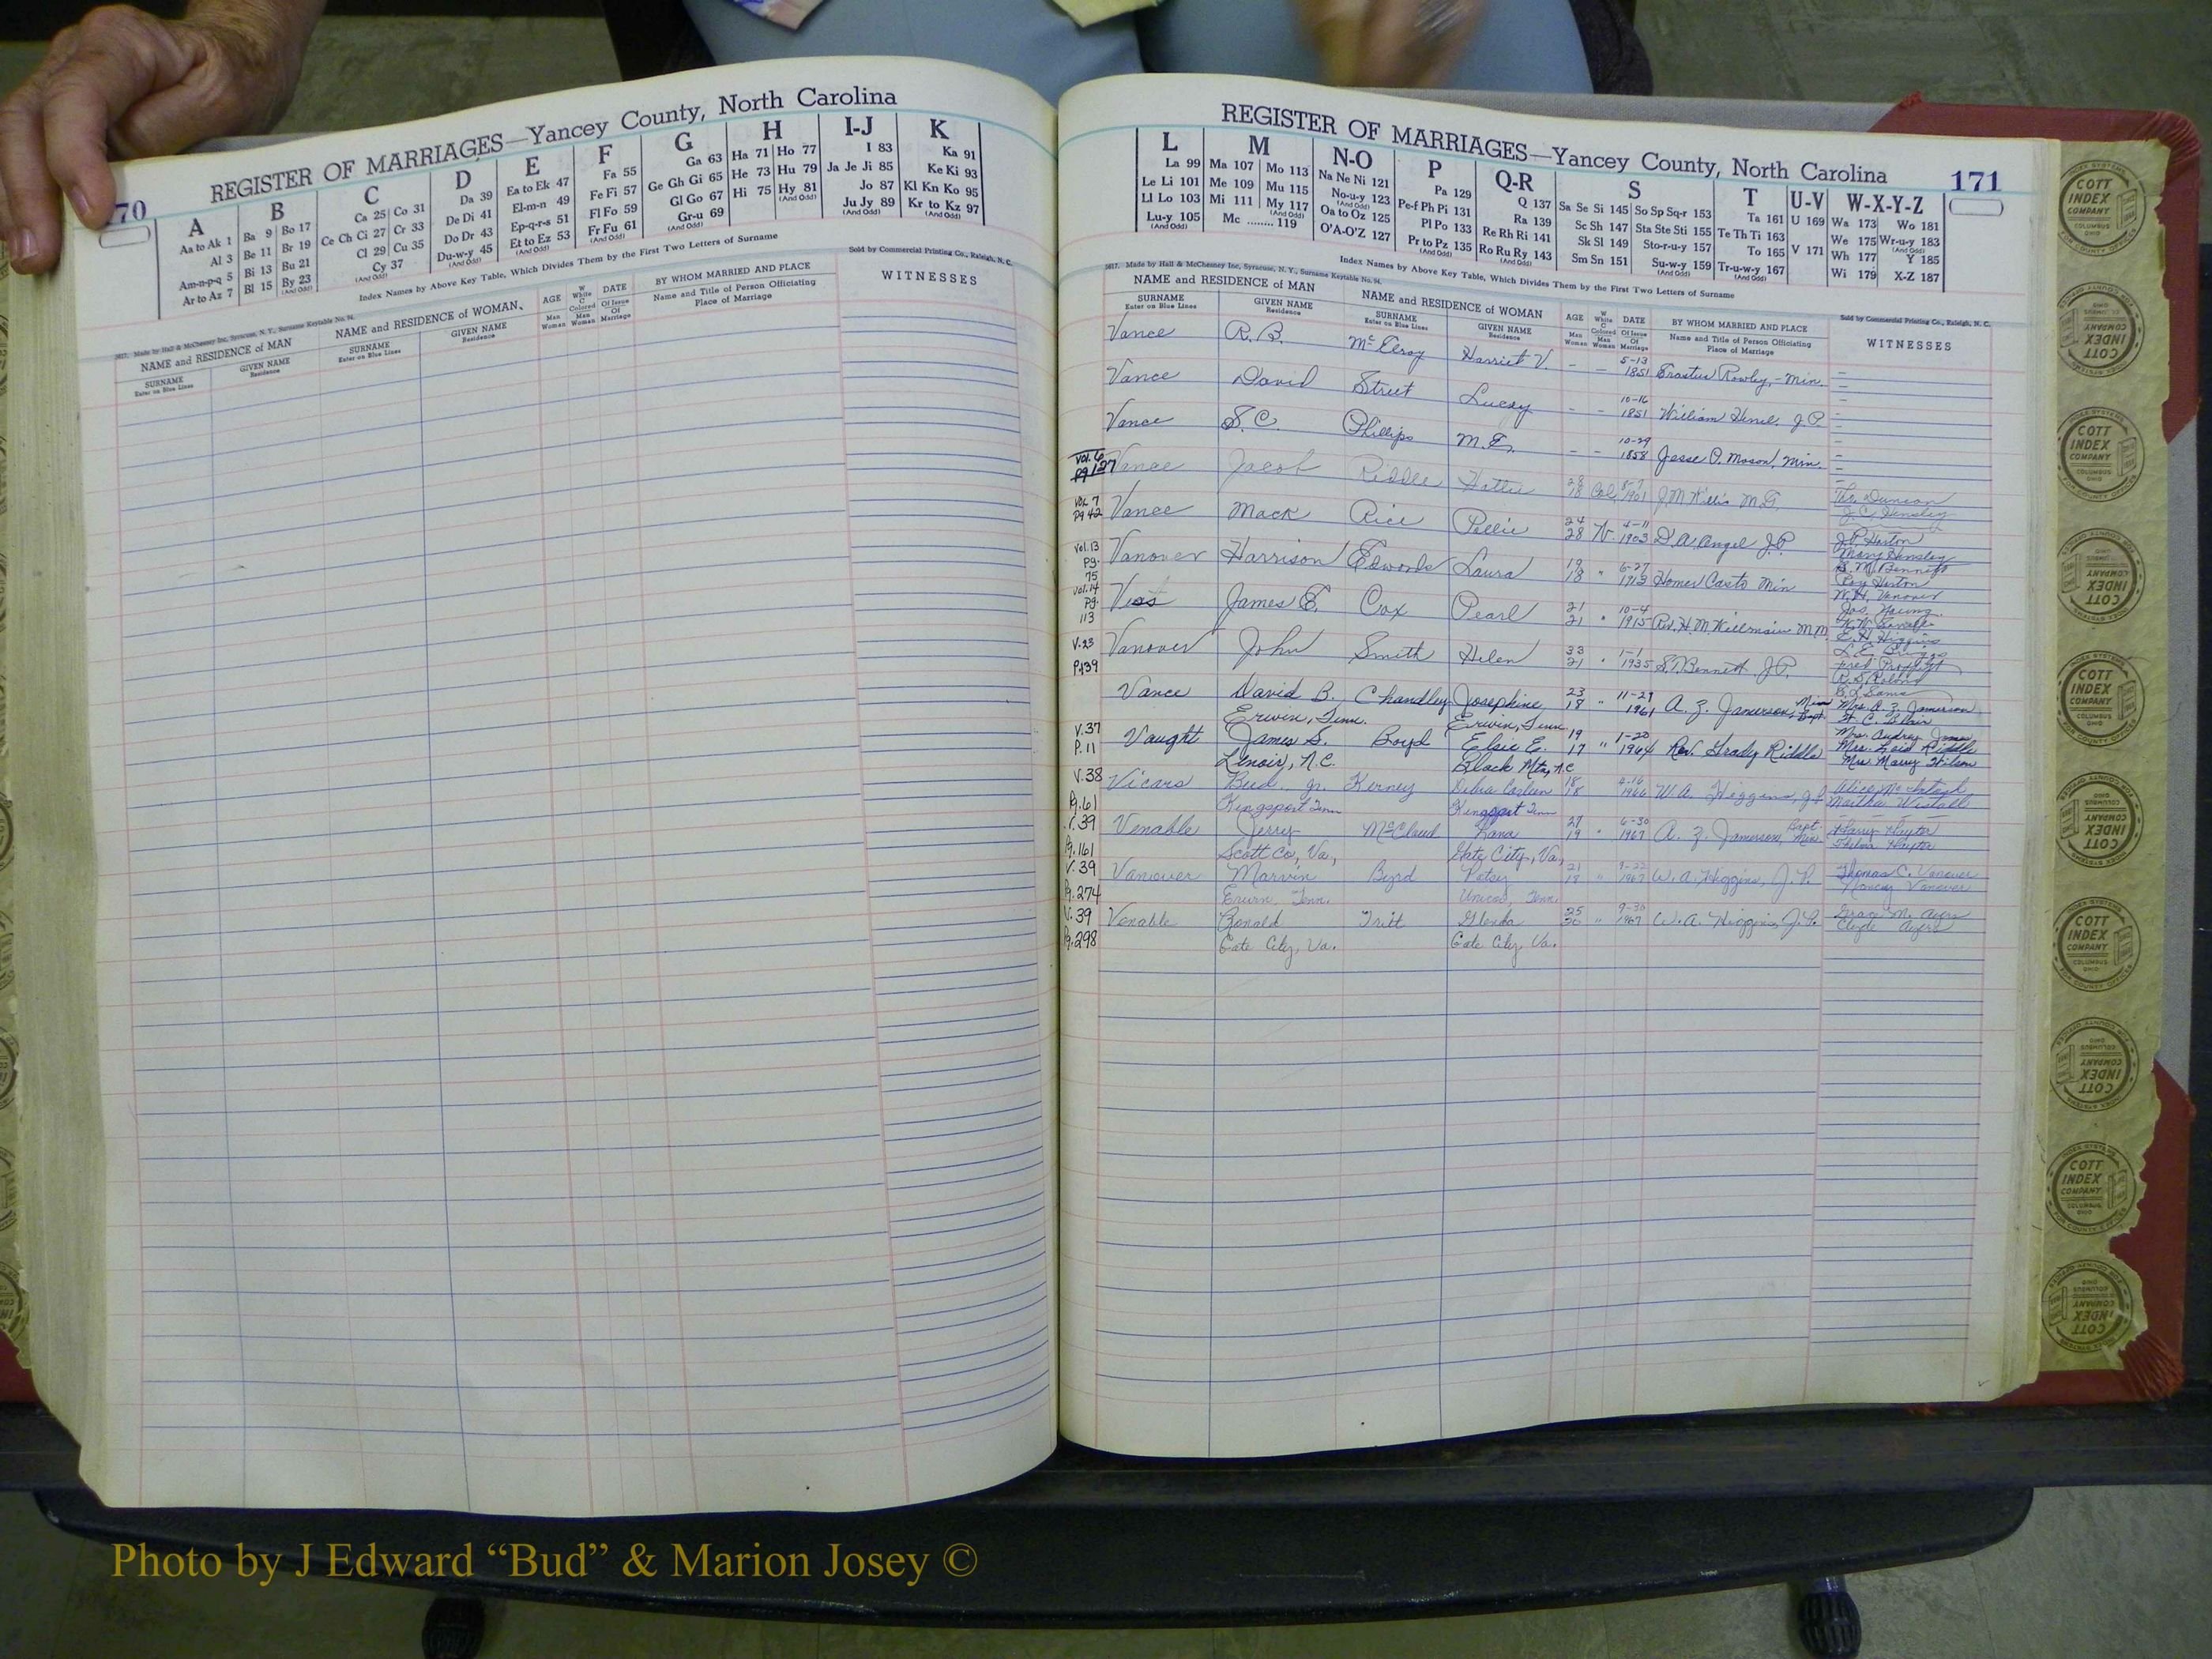 REGISTER OF MARRIAGES—Yancey County, North Carolina
70
A B C D E F G H I-J K
Aa to Ak 1 Ba 9 Bo 17 Ca 25 Co 31 Da 39 Ea to Ek 47 Fa 55 Ga 63 Ha 71 Ho 77 I 83 Ka 91
Al 3 Be 11 Br 19 Ce Ch Ci 27 Cr 33 De Di 41 El-m-n 49 Fe Fi 57 Ge Gh Gi 65 He 73 Hu 79 Ja Je Ji 85 Ke Ki 93
Am-n-p-q 5 Bi 13 Bu 21 Cl 29 Cu 35 Do Dr 43 Ep-q-r-s 51 Fl Fo 59 Gl Go 67 Hi 75 Hy 81 Jo 87 Kl Kn Ko 95
Ar to Az 7 Bl 15 By 23 Cy 37 Du-w-y 45 Et to Ez 53 Fr Fu 61 Gr-u 69 (And Odd) Ju Jy 89 Kr to Kz 97
Index Names by Above Key Table, Which Divides Them by the First Two Letters of Surname
Sold by Commercial Printing Co., Raleigh, N. C.
5617. Made by Hall & McChesney Inc, Syracuse, N. Y., Surname Keytable No. 94.
NAME and RESIDENCE OF MAN NAME and RESIDENCE OF WOMAN AGE W White C Colored DATE BY WHOM MARRIED AND PLACE WITNESSES
SURNAME Enter on Blue Lines GIVEN NAME Residence SURNAME Enter on Blue Lines GIVEN NAME Residence Man Woman Man Woman Of Issue Of Marriage Name and Title of Person Officiating Place of Marriage
REGISTER OF MARRIAGES—Yancey County, North Carolina
171
L M N-O P Q-R S T U-V W-X-Y-Z
La 99 Ma 107 Mo 113 Na Ne Ni 121 Pa 129 Q 137 Sa Se Si 145 So Sp Sq-r 153 Ta 161 U 169 Wa 173 Wo 181
Le Li 101 Me 109 Mu 115 No-u-y 123 Pe-f Ph Pi 131 Ra 139 Sc Sh 147 Sta Ste Sti 155 Te Th Ti 163 We 175 Wr-u-y 183
Ll Lo 103 Mi 111 My 117 Oa to Oz 125 Pl Po 133 Re Rh Ri 141 Sk Sl 149 Sto-r-u-y 157 To 165 V 171 Wh 177 Y 185
Lu-y 105 Mc 119 O'A-O'Z 127 Pr to Pz 135 Ro Ru Ry 143 Sm Sn 151 Su-w-y 159 Tr-u-w-y 167 Wi 179 X-Z 187
Index Names by Above Key Table, Which Divides Them by the First Two Letters of Surname
5617. Made by Hall & McChesney Inc, Syracuse, N. Y., Surname Keytable No. 94.
Sold by Commercial Printing Co., Raleigh, N. C.
NAME and RESIDENCE OF MAN NAME and RESIDENCE OF WOMAN AGE W White C Colored DATE BY WHOM MARRIED AND PLACE WITNESSES
SURNAME Enter on Blue Lines GIVEN NAME Residence SURNAME Enter on Blue Lines GIVEN NAME Residence Man Woman Man Woman Of Issue Of Marriage Name and Title of Person Officiating Place of Marriage
Vance R. B. McElroy Harriet V. - - 5-13 1851 Erastus Rowley, - Min.
Vance David Street Lucey - - 10-16 1851 William J.P.
Vance S. C. Phillips M. E. - - 10-29 1858 Jesse P. Mason, Min.
Vol. 6 Pg 127 Vance Jacob Riddle Hattie 28 18 Col. 1901 M.G.
Vol. 7 Pg 42 Vance Mack Rice Pellie 24 28 W. 4-11 1903 D. A. Angel J.P. Mary Hensley
Vol. 13 Pg. 75 Vanover Harrison Edwards Laura 19 18 " 6-27 1913 Homer Casto Min Roy Horton W. H. Vanover
Vol. 14 Pg. 113 Vess James E. Cox Pearl 21 21 " 10-4 1915 Jas. Young E. H. Higgins
V. 23 P. 139 Vanover John Smith Helen 33 21 " 1-1 1935 S. T. Bennett J.P.
Vance David B. Chandley Josephine 23 18 " 11-29 1961 A. Z. Jamerson, Min Bapt. Mrs. A. Z. Jamerson
Erwin, Tenn. Erwin, Tenn.
V. 37 P. 11 Vaught James S. Boyd Elsie E. 19 17 " 1-20 1964 Rev. Grady Riddle Mrs. Audrey Jones Mrs. Zoid Riddle Mrs Mary Wilson
Lenoir, N.C. Black Mtn, N.C
V. 38 Pg. 61 Vicars Bud Jr. Kerney Debra 18 18 4-16 1966 W. A. Higgins, J.P. Alice McIntosh Martha Westall
Kingsport Tenn Kingsport Tenn
V. 39 Pg. 161 Venable Jerry McClaud Kana 27 19 " 6-30 1967 A. Z. Jamerson, Bapt. Min. Harry Hayter Thelma Hayter
Scott Co, Va., Gate City, Va.,
V. 39 Pg. 274 Vanover Marvin Byrd Patsy 21 18 " 9-22 1967 W. A. Higgins, J.P. Thomas C. Vanover Nancy Vanover
Erwin, Tenn. Unicoi, Tenn.
V. 39 Pg. 298 Venable Ronald Tritt Glenda 25 20 " 9-30 1967 W. A. Higgins, J.P. Grace M. Ayers Clyde Ayers
Gate City, Va. Gate City, Va.
COTT INDEX COMPANY COLUMBUS OHIO
Photo by J Edward “Bud” & Marion Josey ©